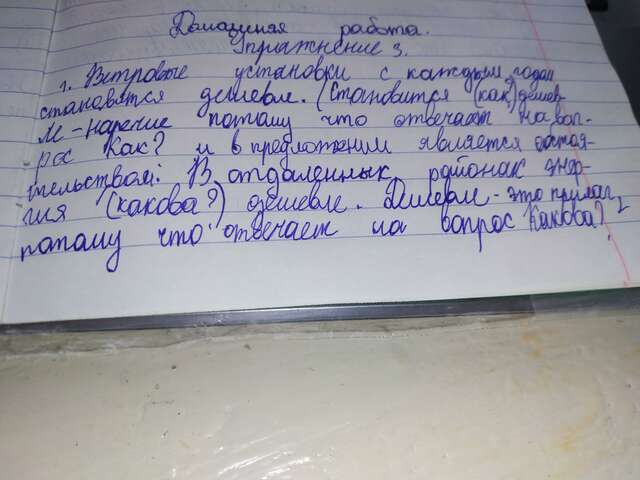 Домашняя работа.
Упражнение 3.
1. Ветровые установки с каждым годом
становятся дешевле. (Становится (как) дешев-
ле - наречие потому что отвечает на воп-
рос Как? и в предложении является обстоя-
тельством. В отдаленных районах энер-
гия (какова?) дешевле. Дешевле - это прилаг,
потаму что отвечает на вопрос Какова?